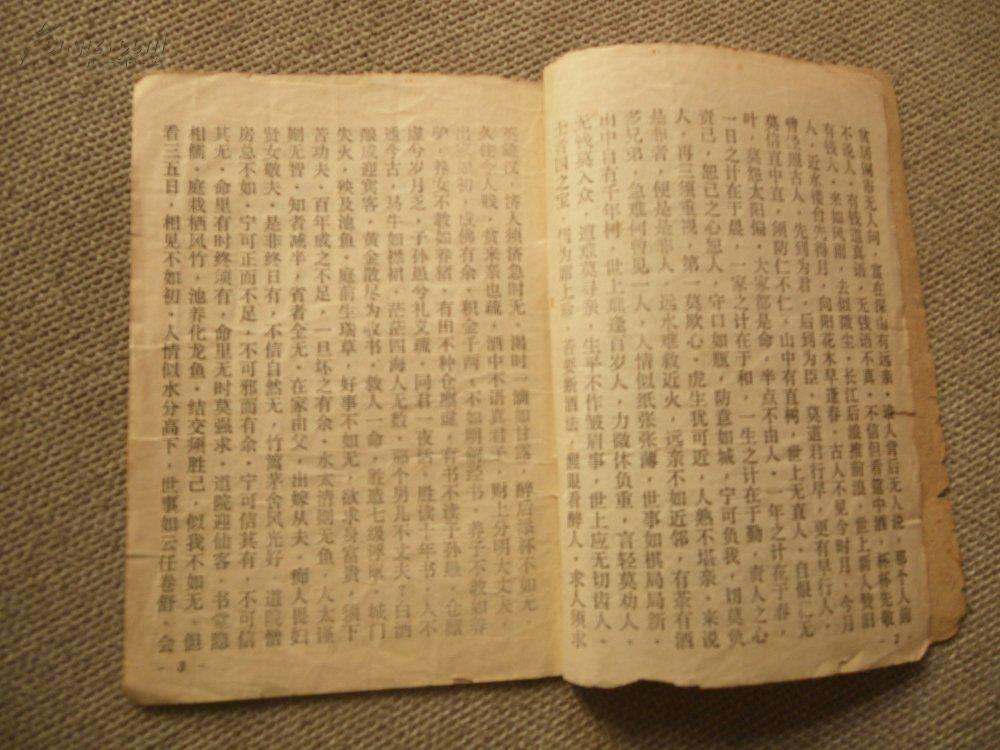 贫居闹市无人问，富在深山有远亲，谁人背后无人说，那个人前
不说人，有钱道真语，无钱语不真，不信但看筵中酒，杯杯先敬
有钱人，来如风雨，去似微尘，长江后浪推前浪，世上新人赞旧
人，近水楼台先得月，向阳花木早逢春，古人不见今时月，今月
曾经照古人，先到为君，后到为臣，莫道君行早，更有早行人，
莫信直中直，须防仁不仁，山中有直树，世上无直人，自恨枝无
叶，莫怨太阳偏，大家都是命，半点不由人，一年之计在于春，
一日之计在于晨，一家之计在于和，一生之计在于勤，责人之心
责己，恕己之心恕人，守口如瓶，防意如城，宁可负我，切莫负
人，再三须重视，第一莫欺心，虎生犹可近，人熟不堪亲，来说
是非者，便是是非人，远水难救近火，远亲不如近邻，有茶有酒
多兄弟，急难何曾见一人，人情似纸张张薄，世事如棋局局新，
山中自有千年树，世上难逢百岁人，力微休负重，言轻莫劝人，
无钱莫入众，遭难莫寻亲，生平不作皱眉事，世上应无切齿人，
士者国之宝，儒为席上珍，若要断酒法，醒眼看醉人，求人须求
2
英雄汉，济人须济急时无，渴时一滴如甘露，醉后添杯不如无，
久住令人贱，贫来亲也疏，酒中不语真君子，财上分明大丈夫，
出家如初，成佛有余，积金千两，不如明解经书，养子不教如养
驴，养女不教如养猪，有田不种仓廪虚，有书不读子孙愚，仓廪
虚兮岁月乏，子孙愚兮礼义疏，同君一夜话，胜读十年书，人不
通今古，马牛如襟裾，茫茫四海人无数，那个男儿不丈夫？白酒
酿成迎宾客，黄金散尽为收书，救人一命，胜造七级浮屠，城门
失火，殃及池鱼，庭前生瑞草，好事不如无，欲求身富贵，须下
苦功夫，百年成之不足，一旦坏之有余，水太清则无鱼，人太谨
则无智，知者减半，省者全无，在家由父，出嫁从夫，痴人畏妇
贤女敬夫，是非终日有，不信自然无，竹篱茅舍风光好，道院僧
房总不如，宁可正而不足，不可邪而有余，宁可信其有，不可信
其无，命里有时终须有，命里无时莫强求，道院迎仙客，书堂隐
相儒，庭栽栖凤竹，池养化龙鱼，结交须胜己，似我不如无，但
看三五日，相见不如初，人情似水分高下，世事如云任卷舒，会
- 3 -